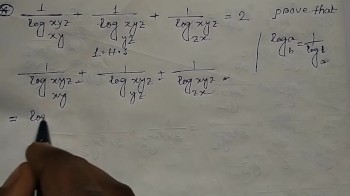 1/log_xy xyz + 1/log_yz xyz + 1/log_zx xyz = 2 prove that
L.H.S
log_b a = 1/log_a b
1/log_xy xyz + 1/log_yz xyz + 1/log_zx xyz
= log